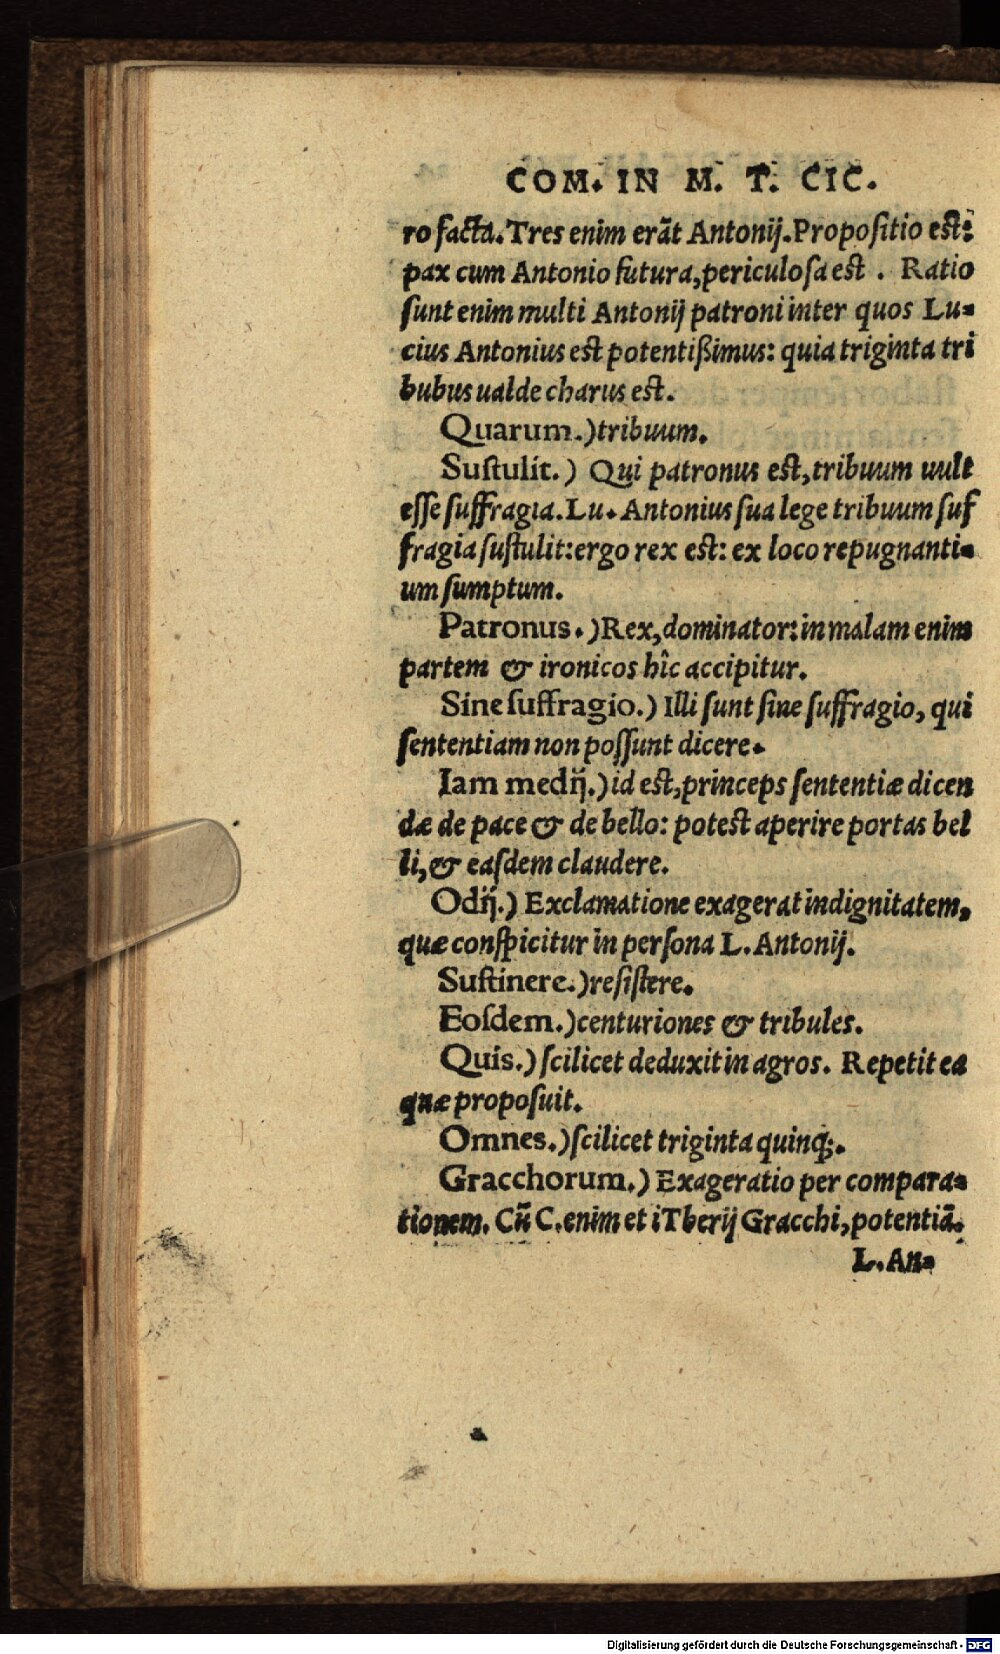 COM. IN M. T. CIC.
ro facta. Tres enim erāt Antonij. Propositio est:
pax cum Antonio futura, periculosa est . Ratio
sunt enim multi Antonij patroni inter quos Lu-
cius Antonius est potentißimus: quia triginta tri
bubus ualde charus est.
Quarum.) tribuum.
Sustulit.) Qui patronus est, tribuum uult
esse suffragia. Lu. Antonius sua lege tribuum suf
fragia sustulit: ergo rex est: ex loco repugnanti-
um sumptum.
Patronus.) Rex, dominator: in malam enim
partem & ironicos hîc accipitur.
Sine suffragio.) Illi sunt sine suffragio, qui
sententiam non possunt dicere.
Iam medij.) id est, princeps sententiæ dicen
dæ de pace & de bello: potest aperire portas bel
li, & easdem claudere.
Odij.) Exclamatione exagerat indignitatem,
quæ conspicitur in persona L. Antonij.
Sustinere.) resistere.
Eosdem.) centuriones & tribules.
Quis.) scilicet deduxit in agros. Repetit ea
quæ proposuit.
Omnes.) scilicet triginta quinq;.
Gracchorum.) Exageratio per compara-
tionem. Cū C. enim et iTberij Gracchi, potentiā.
L. An-
Digitalisierung gefördert durch die Deutsche Forschungsgemeinschaft - DFG